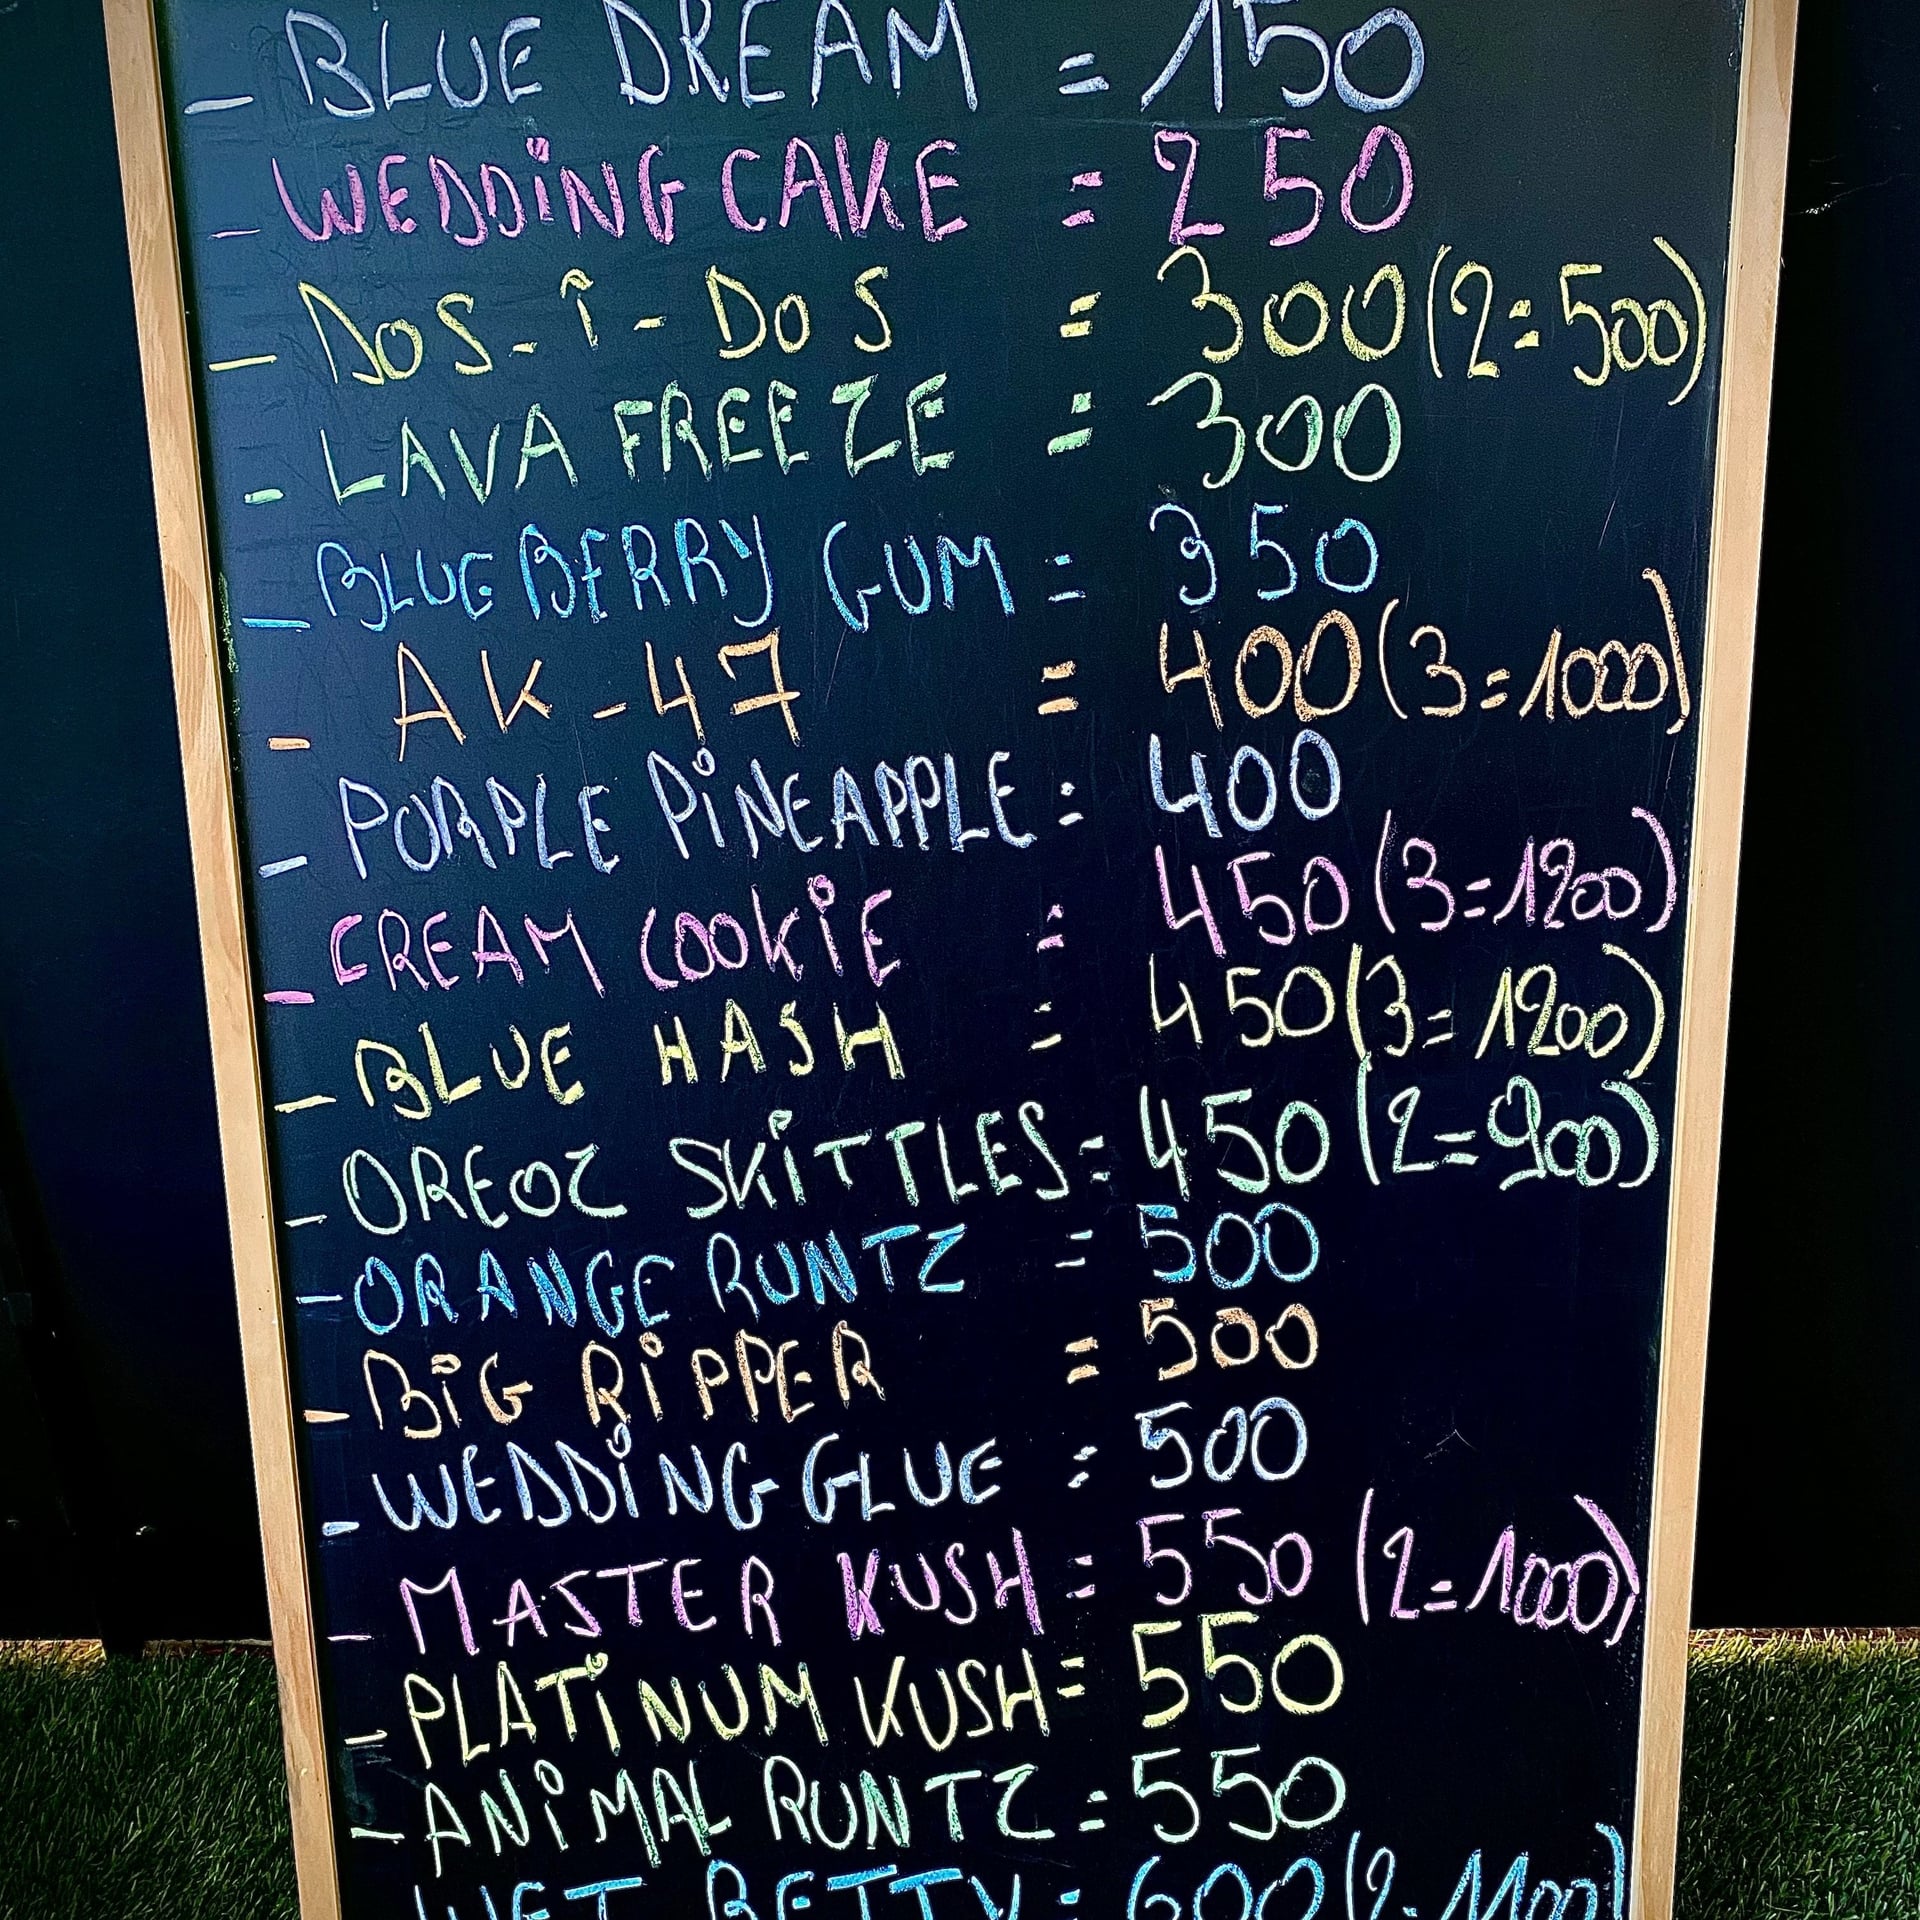 - BLUE DREAM = 150
- WEDDING CAKE = 250
- DOS-Î-DOS = 300 (2=500)
- LAVA FREEZE = 300
- BLUEBERRY GUM = 350
- AK-47 = 400 (3=1000)
- PURPLE PINEAPPLE = 400
- CREAM COOKIE = 450 (3=1200)
- BLUE HASH = 450 (3=1200)
- OREOZ SKITTLES = 450 (2=900)
- ORANGE RUNTZ = 500
- BIG RIPPER = 500
- WEDDING GLUE = 500
- MASTER KUSH = 550 (2=1000)
- PLATINUM KUSH = 550
- ANIMAL RUNTZ = 550
WET BETTY = 600 (2=1100)